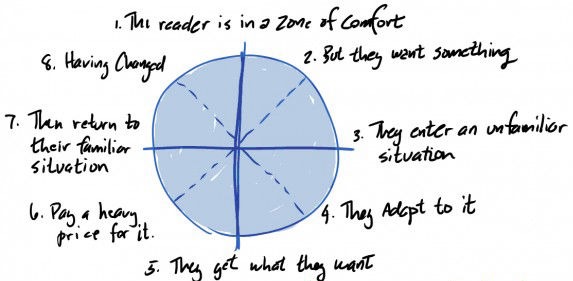 1. The reader is in a zone of comfort
2. But they want something
3. They enter an unfamiliar
situation
4. They Adapt to it
5. They get what they want
6. Pay a heavy
price for it.
7. Then return to
their familiar
situation
8. Having Changed